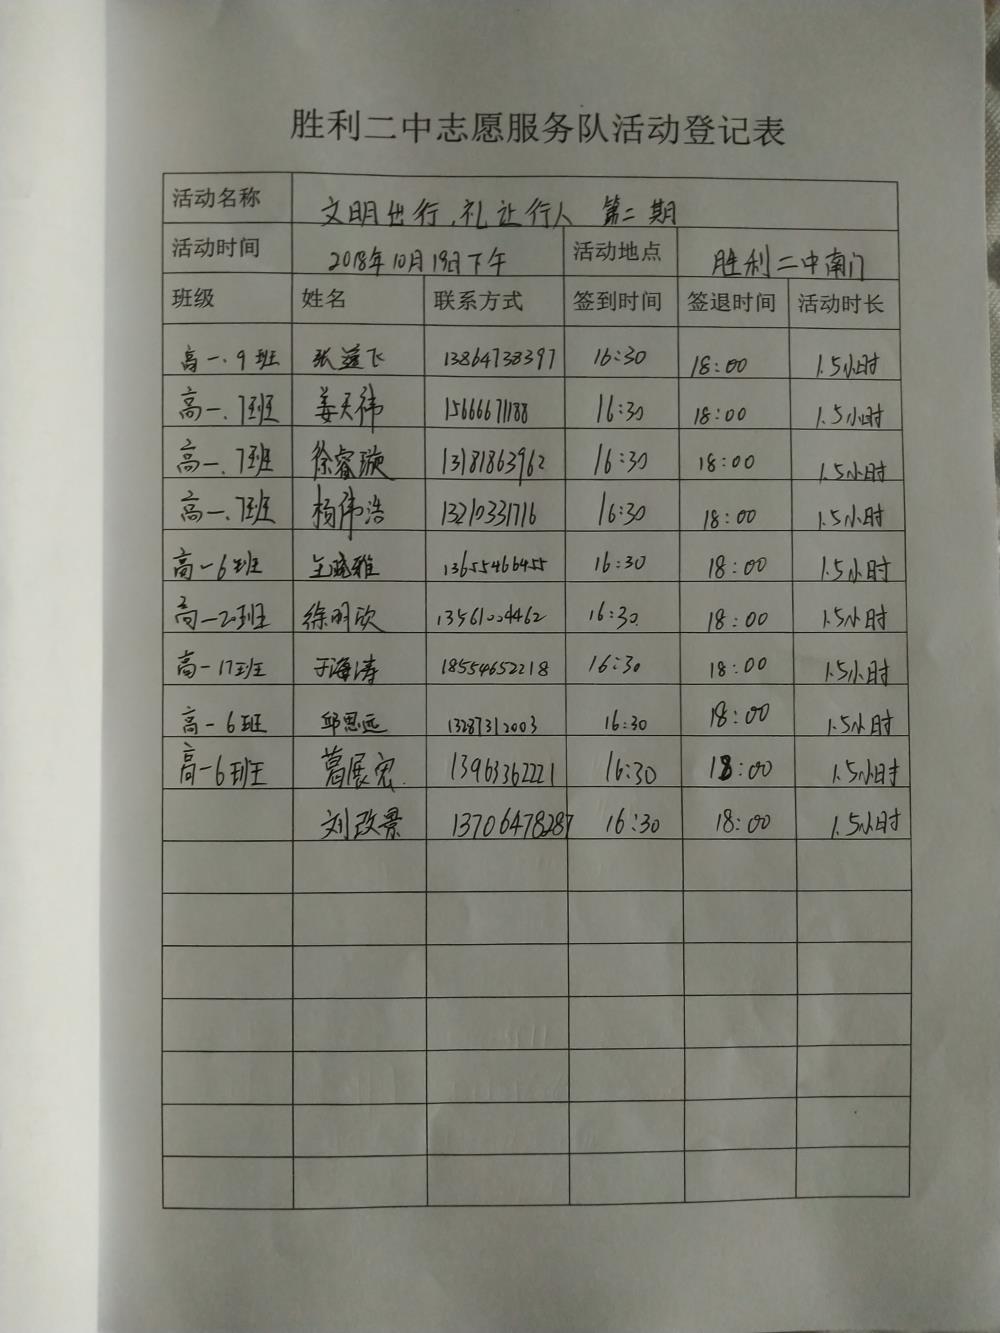 胜利二中志愿服务队活动登记表
活动名称 文明出行,礼让行人 第二期
活动时间 2018年10月19日下午 活动地点 胜利二中南门
班级 姓名 联系方式 签到时间 签退时间 活动时长
高一.9班 张益飞 13864738397 16:30 18:00 1.5小时
高一.7班 姜天祎 15666671188 16:30 18:00 1.5小时
高一.7班 徐睿璇 13181863962 16:30 18:00 1.5小时
高一.7班 杨伟浩 13210331716 16:30 18:00 1.5小时
高一6班 13655466455 16:30 18:00 1.5小时
高一20班 徐明欣 13561004462 16:30 18:00 1.5小时
高一17班 于海涛 18554652218 16:30 18:00 1.5小时
高一6班 邱思远 13287312003 16:30 18:00 1.5小时
高一6班 葛展宏 13963362221 16:30 18:00 1.5小时
刘改景 13706478287 16:30 18:00 1.5小时